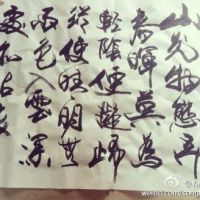 山光物態弄
春暉莫為
輕陰便擬歸
縱使晴明無
雨色入雲深
處亦沾衣
weibo.com/song